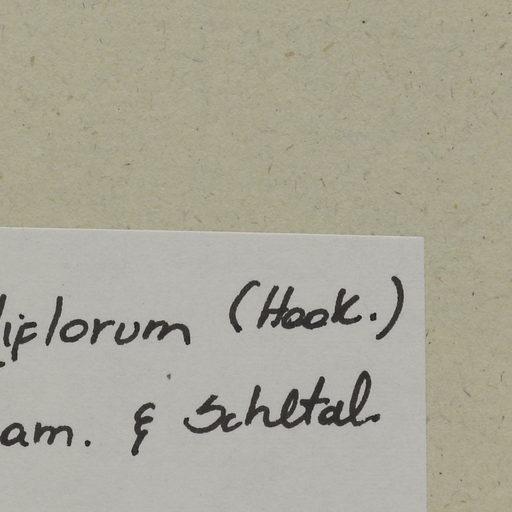 liflorum (Hook.)
am. & Schltdl.